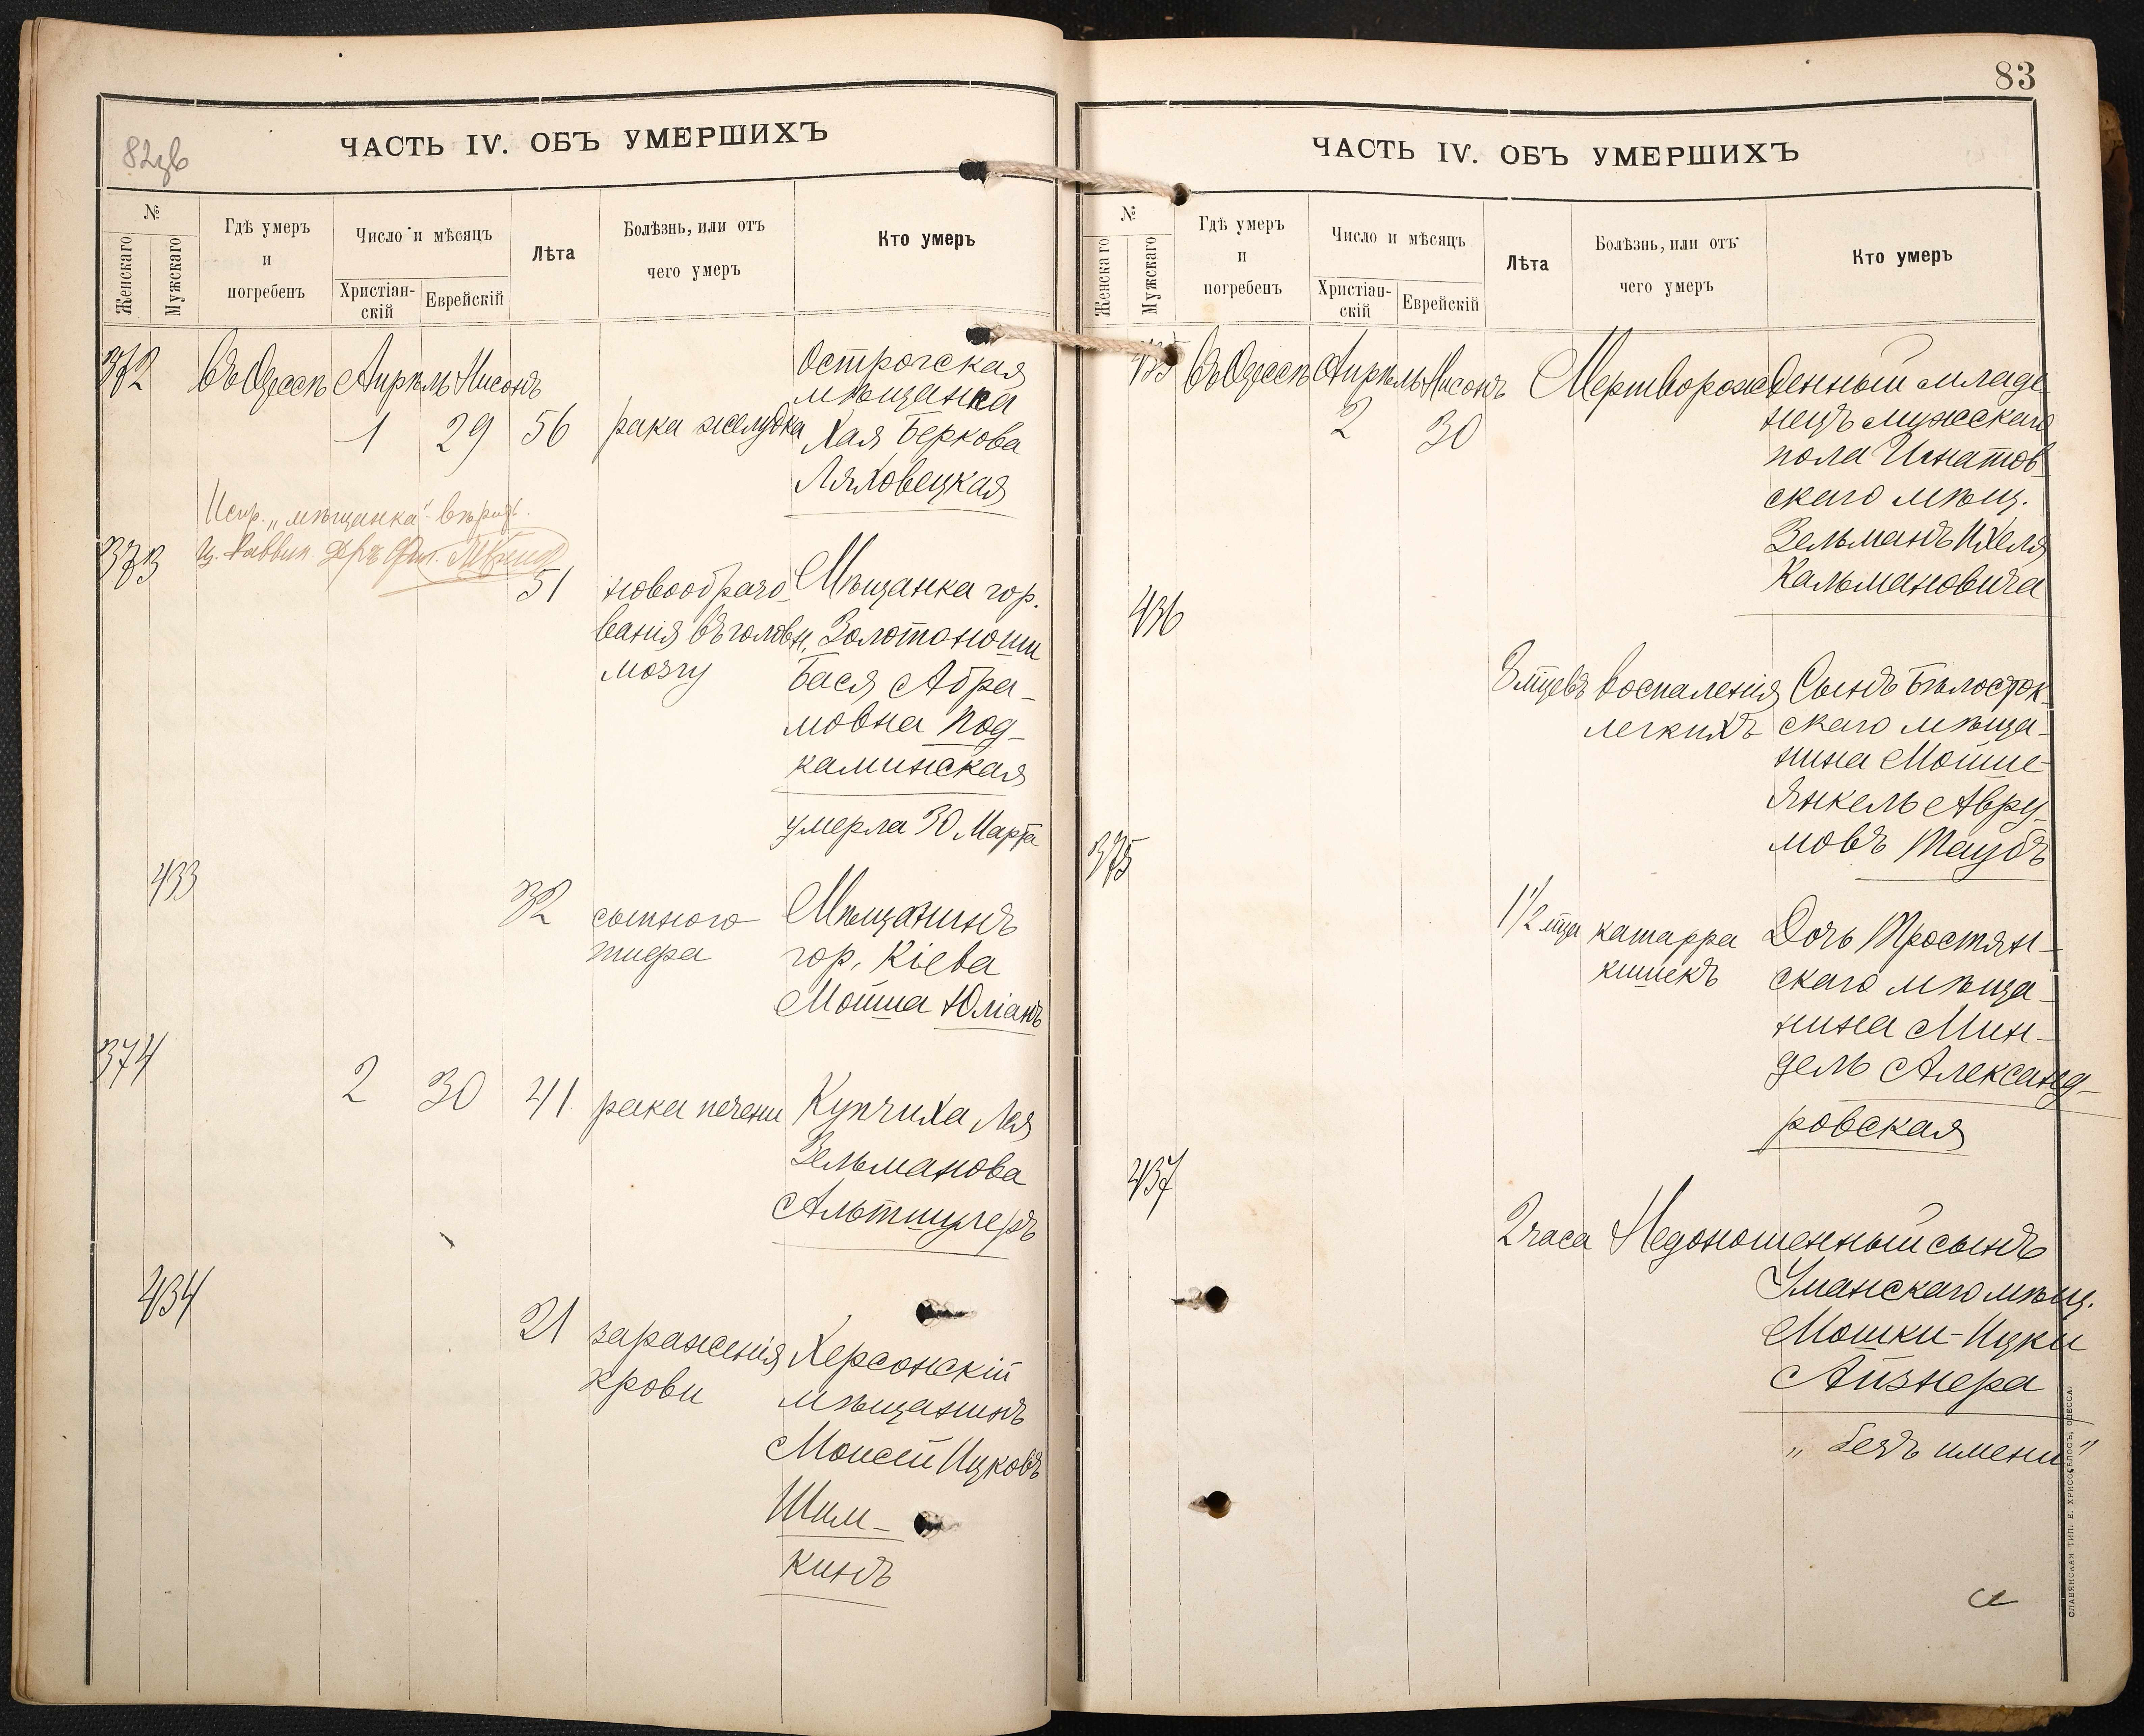 82зв
ЧАСТЬ IV. ОБЪ УМЕРШИХЪ
№
Женскаго
Мужскаго
Гдѣ умеръ
и
погребенъ
Число и мѣсяцъ
Христіан-
скій
Еврейскій
Лѣта
Болѣзнь, или отъ
чего умеръ
Кто умеръ
372 въ Одессѣ Апрѣль Нисонъ
1 29 56 рака желудка
Острогская
мѣщанка
Хая Беркова
Ляховецкая
Испр. „мѣщанка“ вѣрно.
373
51 новообразо-
ванія въ головн.
мозгу
Мѣщанка гор.
Золотоноши
Бася Абра-
мовна Под-
каминская
умерла 30 Марта
433
32 сыпного
тифа
Мѣщанинъ
гор. Кіева
Мойша Юліанъ
374
2 30 41 рака печени
Купчиха Лея
Зельманова
Альтшулеръ
434
21 зараженія
крови
Херсонскій
мѣщанинъ
Моисей Ицковъ
Шим-
кинъ
83
ЧАСТЬ IV. ОБЪ УМЕРШИХЪ
№
Женскаго
Мужскаго
Гдѣ умеръ
и
погребенъ
Число и мѣсяцъ
Христіан-
скій
Еврейскій
Лѣта
Болѣзнь, или отъ
чего умеръ
Кто умеръ
435 въ Одессѣ Апрѣль Нисонъ
2 30
Мертворожденный младе
нецъ мужескаго
пола Игнатов
скаго мѣщ.
Зельманъ Ихеля
Кальмановича
436
8 мцевъ воспаленія
легкихъ
Сынъ Бѣлосток-
скаго мѣща-
нина Мойше
Янкель Авру-
мовъ Таубъ
375
1 1/2 мца катарра
кишекъ
Дочь Тростян-
скаго мѣща-
нина Мин-
дель Александ-
ровская
437
2 часа Недоношенный сынъ
Уманскаго мѣщ.
Мошки-Ицки
Айзнера
„ безъ имени “
СЛАВЯНСКАЯ ТИП. Е. ХРИСОГЕЛОСЪ, ОДЕССА.